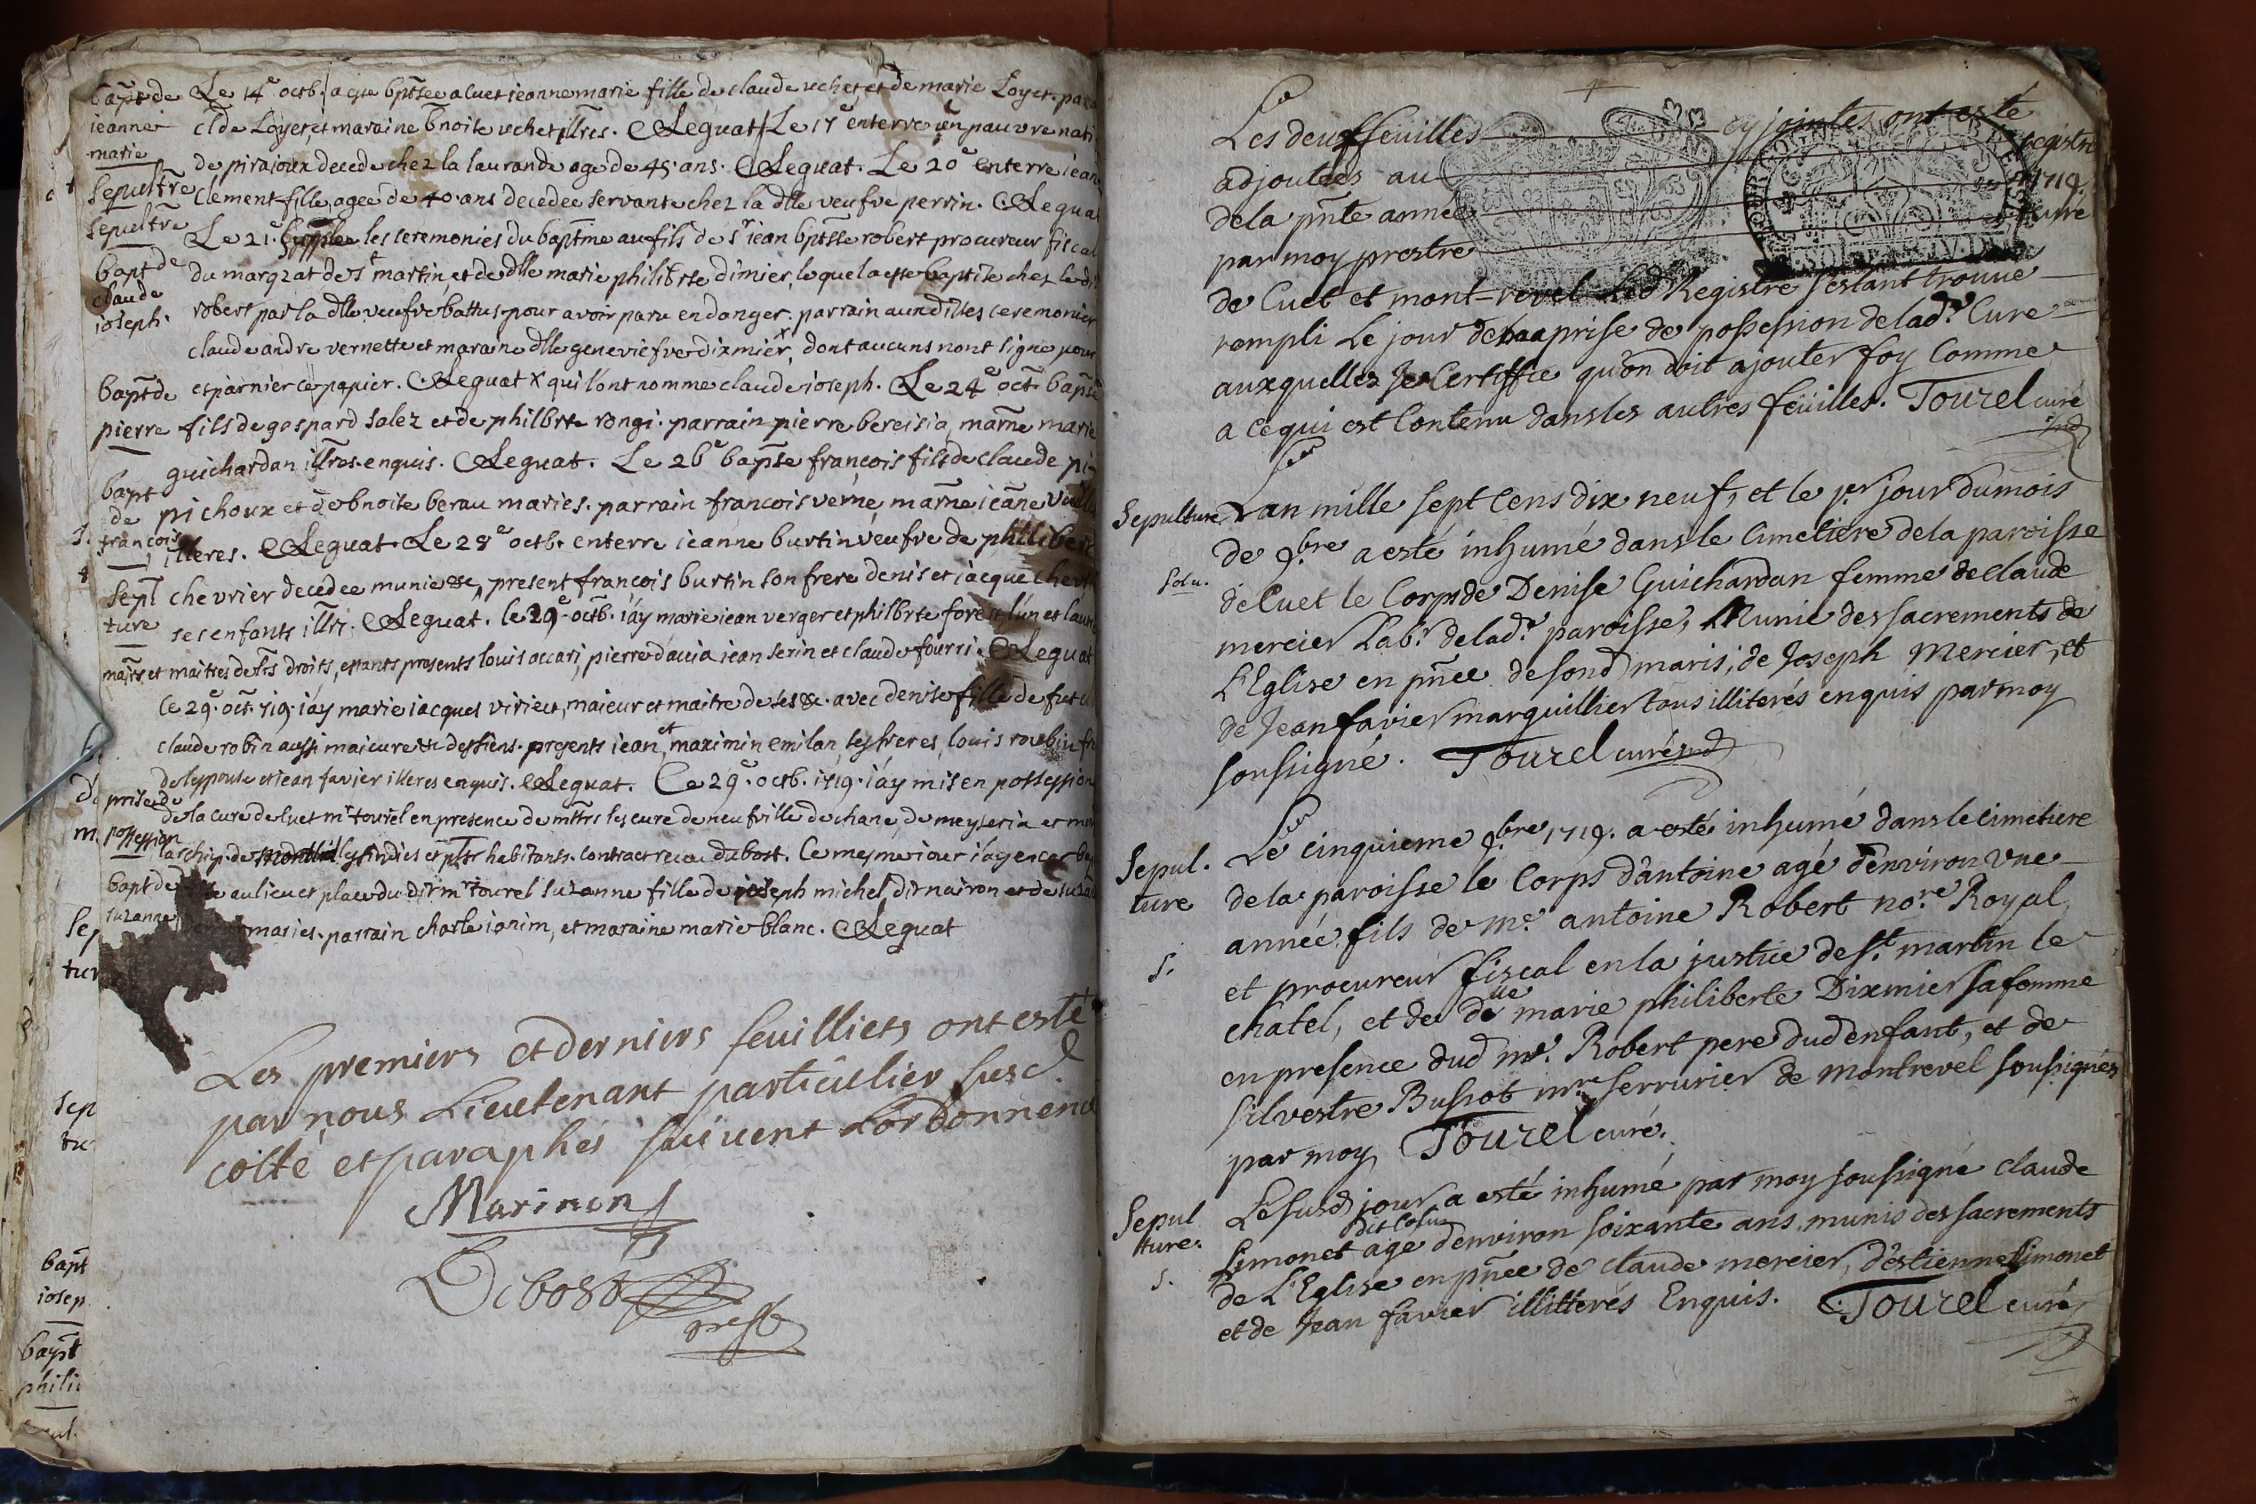 bapt de Le 14e octb. a este bptsee a cuet ieanne marie fille de claude uchet et de marie Loyet. par
ieanne clde Loyet, et maraine bnoite uchet illres. Leguat Le 17e enterre un pauvre nati
marie de pirajoux decede chez la laurande age de 45 ans. Leguat. Le 20e enterre iean
sepultre clement fille, agee de 40 ans decedee servante chez la dlle veufve perrin. Legua
sepultre Le 21e les ceremonies du baptme au fils de sr iean bptste robert procureur fiscal
bapt de du marqzat de st martin, et de dlle marie philibrte dimier, lequel a este baptise chez led
claude robert par la dlle veufve battus pour avoir paru en danger. parrain aux dittes ceremonies
ioseph. claude andre vernette et maraine dlle geneviefve dixmier, x dont aucuns nont signe pour
epàrnier ce papier. Leguat x qui l'ont nomme claude ioseph. Le 24e oct. bapse
bapt de
pierre fils de gaspard salez et de philbrte rongi. parrain pierre bereisia, marne marie
guichardan illres. enquis. Leguat. Le 26e bapse francois fils de claude pi
bapt
de pichoux et de bnoite berau maries. parrain francois verne, marne ieane
francois illeres. Leguat. Le 28e octb. enterre ieanne burtin veufve de philibert
sepl chevrier decedee munie &c, present francois burtin son frere denis et iacque chevr
ture ses enfants illrs. Leguat. le 29e octb. i'ay marie iean verger et philbrte forest l'un et lautre
mairs, et maitres de lrs droits, estants presents louis accari, pierre d'accia iean serin et claude fourri. Leguat
Ce 29e oct. 719. i'ay marie iacques virieu, maieur et maitre de ses &c. avec denise fille de fut cl
claude robin aussi maieure &c des siens. presents iean, et maximin emilan ses freres, louis roubin fr
de l'epouse et iean favier illeres enquis. Leguat. Ce 29e octb. 1719. i'ay mis en possession
prise de
possession de la cure de cuet mr tourel en presence de mttrs les cure de neufville de chane, de meyseria et mr
larchip. de les sindics et plrs habitants. contract receu dubost. Ce mesme iour i'ay encor bap
bapt de au lieu et place du dit mr tourel suzanne fille de ioseph michel dit nairon et de suza
suzanne maries. parrain charle ianim, et maraine marie blanc. Leguat
Les premiers et derniers feuilliets ont esté
par nous Lieutenant particulier susd.
cotté et paraphés suivent Lordonnence
Marinon
Debost
gref
Les deux feuilles cy jointes ont esté
adjoutées au registre
de la pnte année 1719.
par moy prestre curé
de Cuet et mont-revel Led Registre s'estant trouvé
rempli Le jour de ma prise de possession de lad.e Cure
auxquelles Je Certiffie qu'on doit ajouter foy Comme
a ce qui est Contenu dans les autres feüilles. Tourel curé
Sepulture Lan mille sept Cens dix neuf, et le per jour du mois
de 9.bre a esté inhumé dans le Cimetiere de la paroisse
solu. de Cuet le Corps de Denise Guichardan femme de Claude
mercier Lab.r de lad.e paroisse, Munie des sacrements de
L'Eglise en pnce de sond maris, de Joseph Mercier, et
de Jean favier marguillier tous illiterés enquis par moy
soussigné. Tourel curé
Sepul. Le cinquieme 9.bre 1719. a esté inhumé dans le cimetiere
ture de la paroisse le Corps d'antoine agé d'environ vne
année fils de me. antoine Robert no.re Royal,
s. et procureur fiscal en la justice de st. martin le
chatel, et de dlle marie philiberte Dixmier sa femme
en presence dud me. Robert pere dud enfant, et de
silvestre Bussot mre serrurier de montrevel soussignés
par moy Tourel curé.
Sepul Le susd jour a esté inhumé par moy soussigné Claude
ture. Simonet dit Cosu agé denviron soixante ans, munis des sacrements
s. de L'Eglise en pnce de claude mercier, d'estienne simonet
et de Jean favier illitterés Enquis. Tourel curé